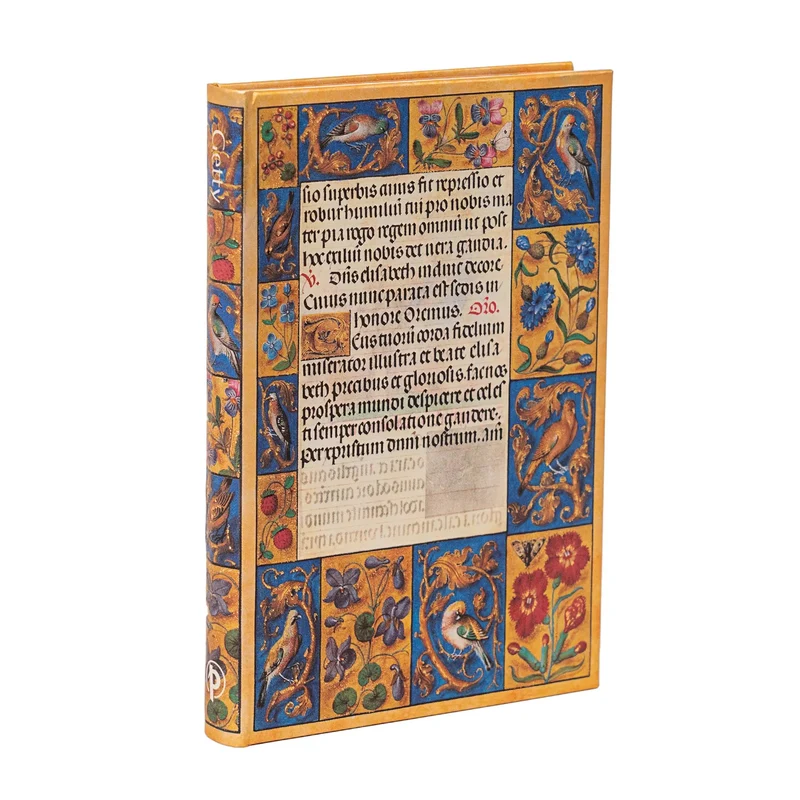 Getty
sio superbis cuius fit repressio et
robur humiliū cui pro nobis ma
ter pia rogo regem omniū ut post
hoc exiliū nobis det vera gaudia.
V. elisabeth decore
Cuius nunc parata est sedis in
honore Oremus. Orō.
Tuorū corda fidelium
miserator illustra et beate elisa
beth precibus et gloriosis fac nos
prospera mundi despicere et celes
ti semper consolatione gaudere.
per xpistum dnm nostrum. am
P